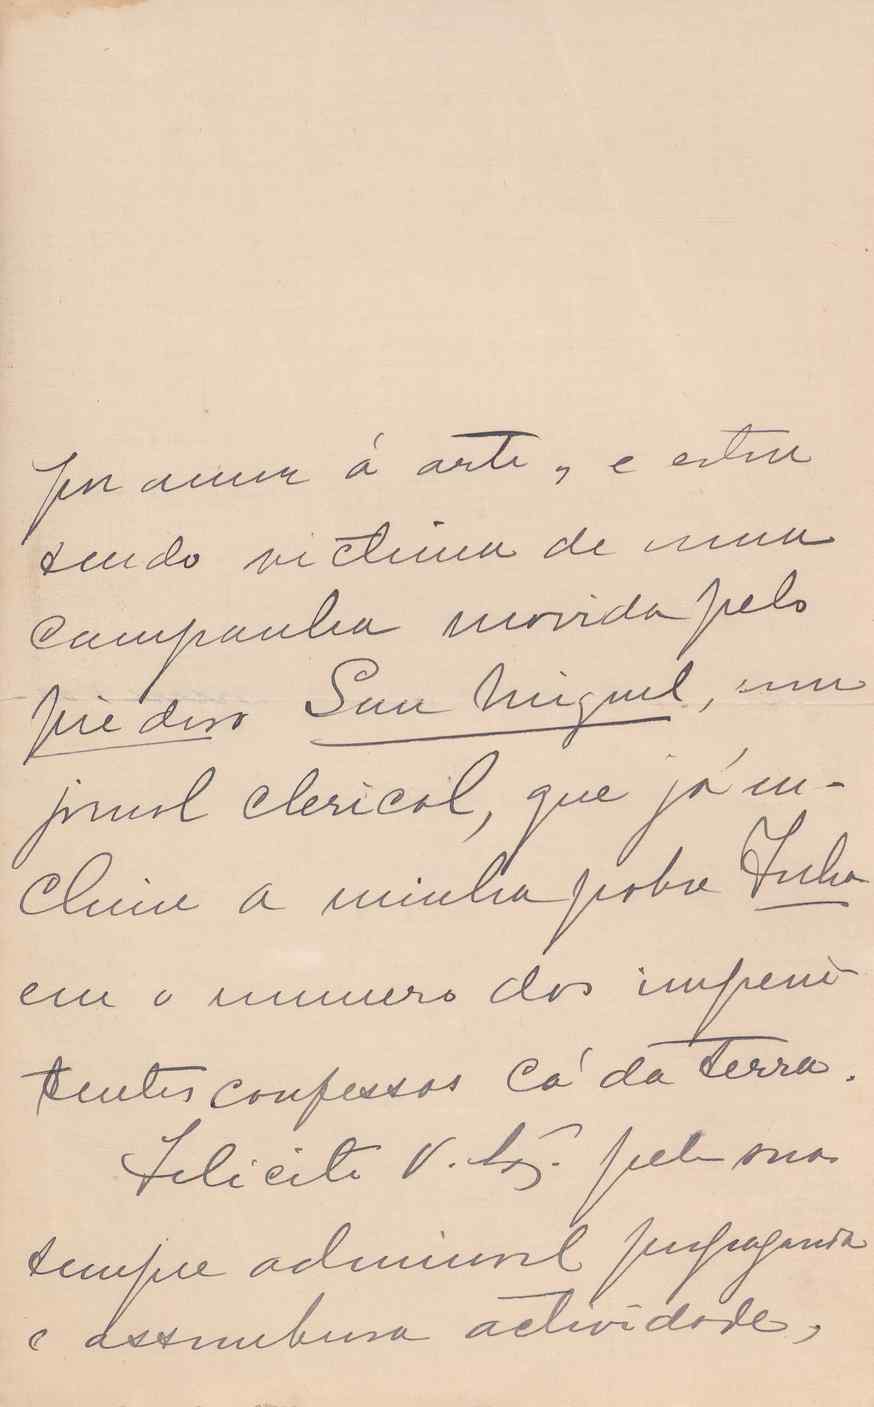 por amor á arte, e estou
sendo victima de uma
campanha movida pelo
piedoso San Miguel, um
jornal clerical, que já in-
cluiu a minha pobre Folha
em o numero dos impeni-
tentes confessos cá da terra.
Felicito V. pela sua
sempre admiravel propaganda
e assombrosa actividade,